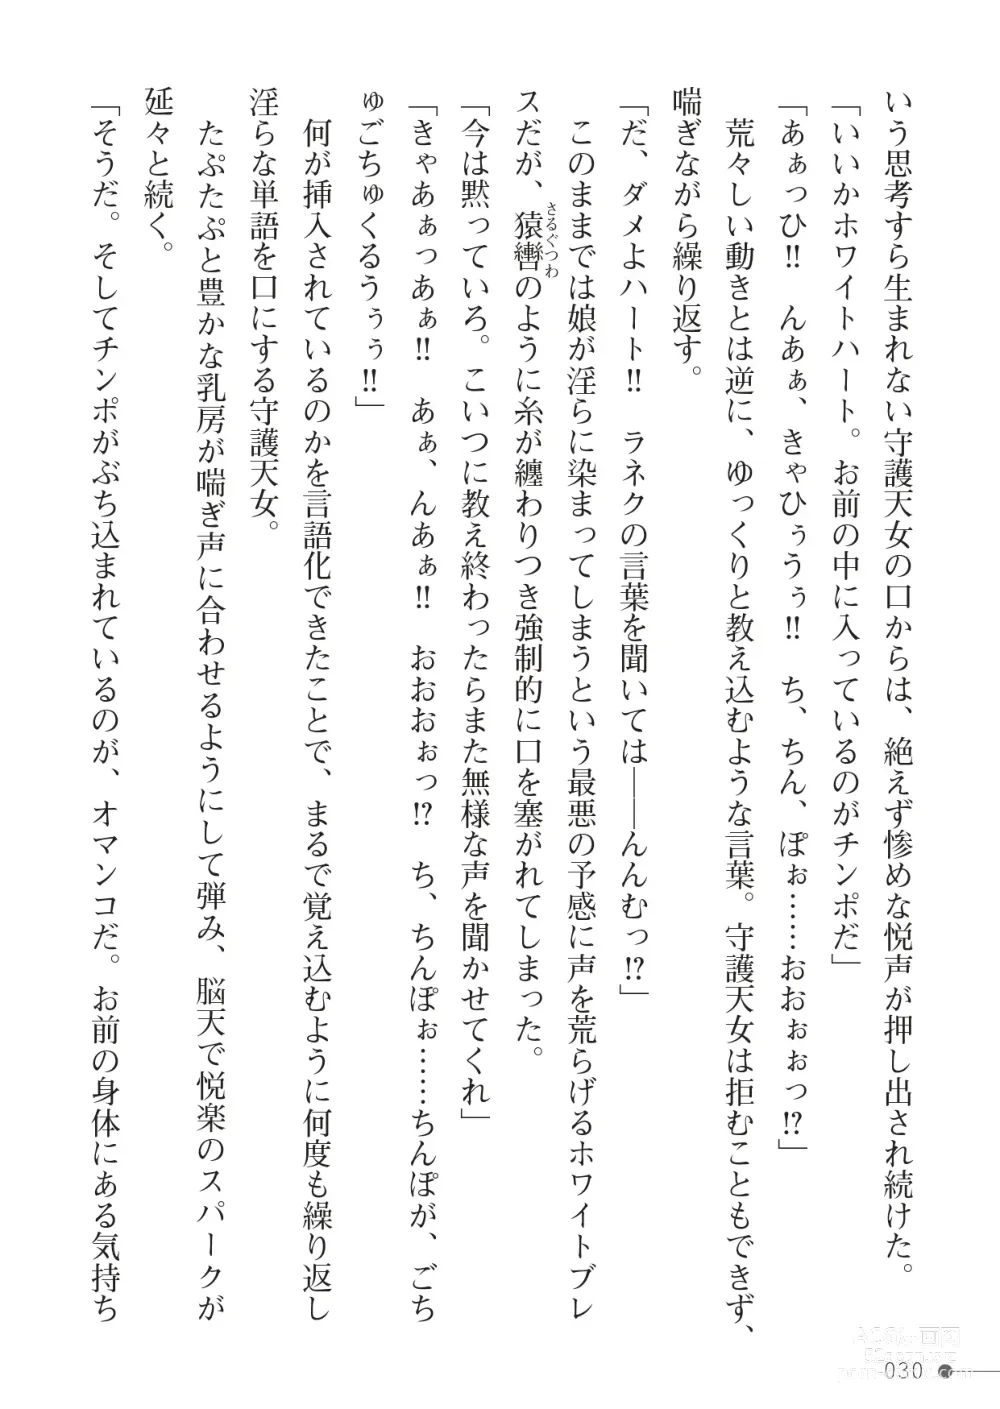 いう思考すら生まれない守護天女の口からは、絶えず惨めな悦声が押し出され続けた。
「いいかホワイトハート。お前の中に入っているのがチンポだ」
「あぁっひ!!　んあぁ、きゃひぅうぅ!!　ち、ちん、ぽぉ……おおぉぉっ!?」
　荒々しい動きとは逆に、ゆっくりと教え込むような言葉。守護天女は拒むこともできず、
喘ぎながら繰り返す。
「だ、ダメよハート!!　ラネクの言葉を聞いては――んんむっ!?」
　このままでは娘が淫らに染まってしまうという最悪の予感に声を荒らげるホワイトブレ
スだが、猿轡さるぐつわのように糸が纏わりつき強制的に口を塞がれてしまった。
「今は黙っていろ。こいつに教え終わったらまた無様な声を聞かせてくれ」
「きゃあぁっあぁ!!　あぁ、んあぁ!!　おおおぉっ!?　ち、ちんぽぉ……ちんぽが、ごち
ゅごちゅくるうぅぅ!!」
　何が挿入されているのかを言語化できたことで、まるで覚え込むように何度も繰り返し
淫らな単語を口にする守護天女。
　たぷたぷと豊かな乳房が喘ぎ声に合わせるようにして弾み、脳天で悦楽のスパークが
延々と続く。
「そうだ。そしてチンポがぶち込まれているのが、オマンコだ。お前の身体にある気持ち
030